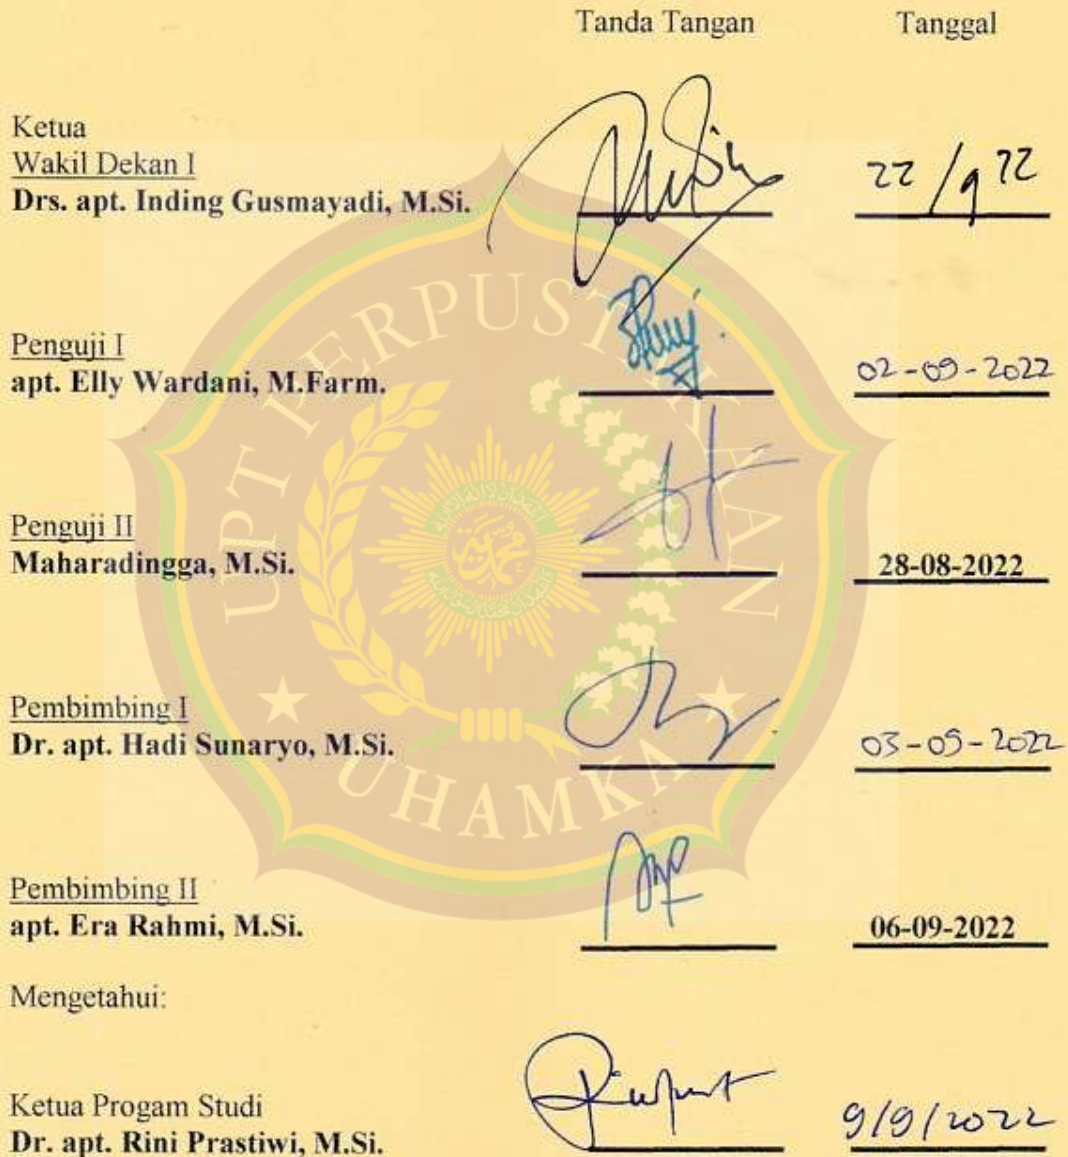 Tanda Tangan Tanggal
Ketua
Wakil Dekan I
Drs. apt. Inding Gusmayadi, M.Si. 22/9 22
Penguji I
apt. Elly Wardani, M.Farm. 02-09-2022
Penguji II
Maharadingga, M.Si. 28-08-2022
Pembimbing I
Dr. apt. Hadi Sunaryo, M.Si. 03-09-2022
Pembimbing II
apt. Era Rahmi, M.Si. 06-09-2022
Mengetahui:
Ketua Progam Studi
Dr. apt. Rini Prastiwi, M.Si. 9/9/2022
UPT PERPUSTAKAAN
UHAMKA